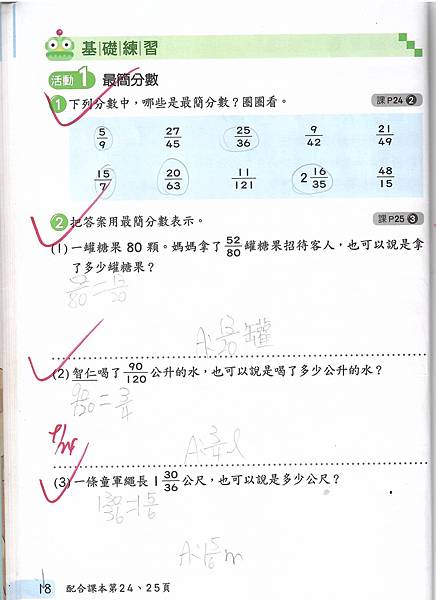 基礎練習
活動1 最簡分數
1 下列分數中，哪些是最簡分數？圈圈看。 課P24 2
5/9 27/45 25/36 9/42 21/49
15/7 20/63 11/121 2 16/35 48/15
2 把答案用最簡分數表示。 課P25 3
(1) 一罐糖果 80 顆。媽媽拿了 52/80 罐糖果招待客人，也可以說是拿
了多少罐糖果？
52/80 = 13/20
A: 13/20 罐
(2) 智仁喝了 90/120 公升的水，也可以說是喝了多少公升的水？
90/120 = 3/4
A: 3/4 l
(3) 一條童軍繩長 1 30/36 公尺，也可以說是多少公尺？
1 30/36 = 1 5/6
A: 1 5/6 m
18 配合課本第24、25頁